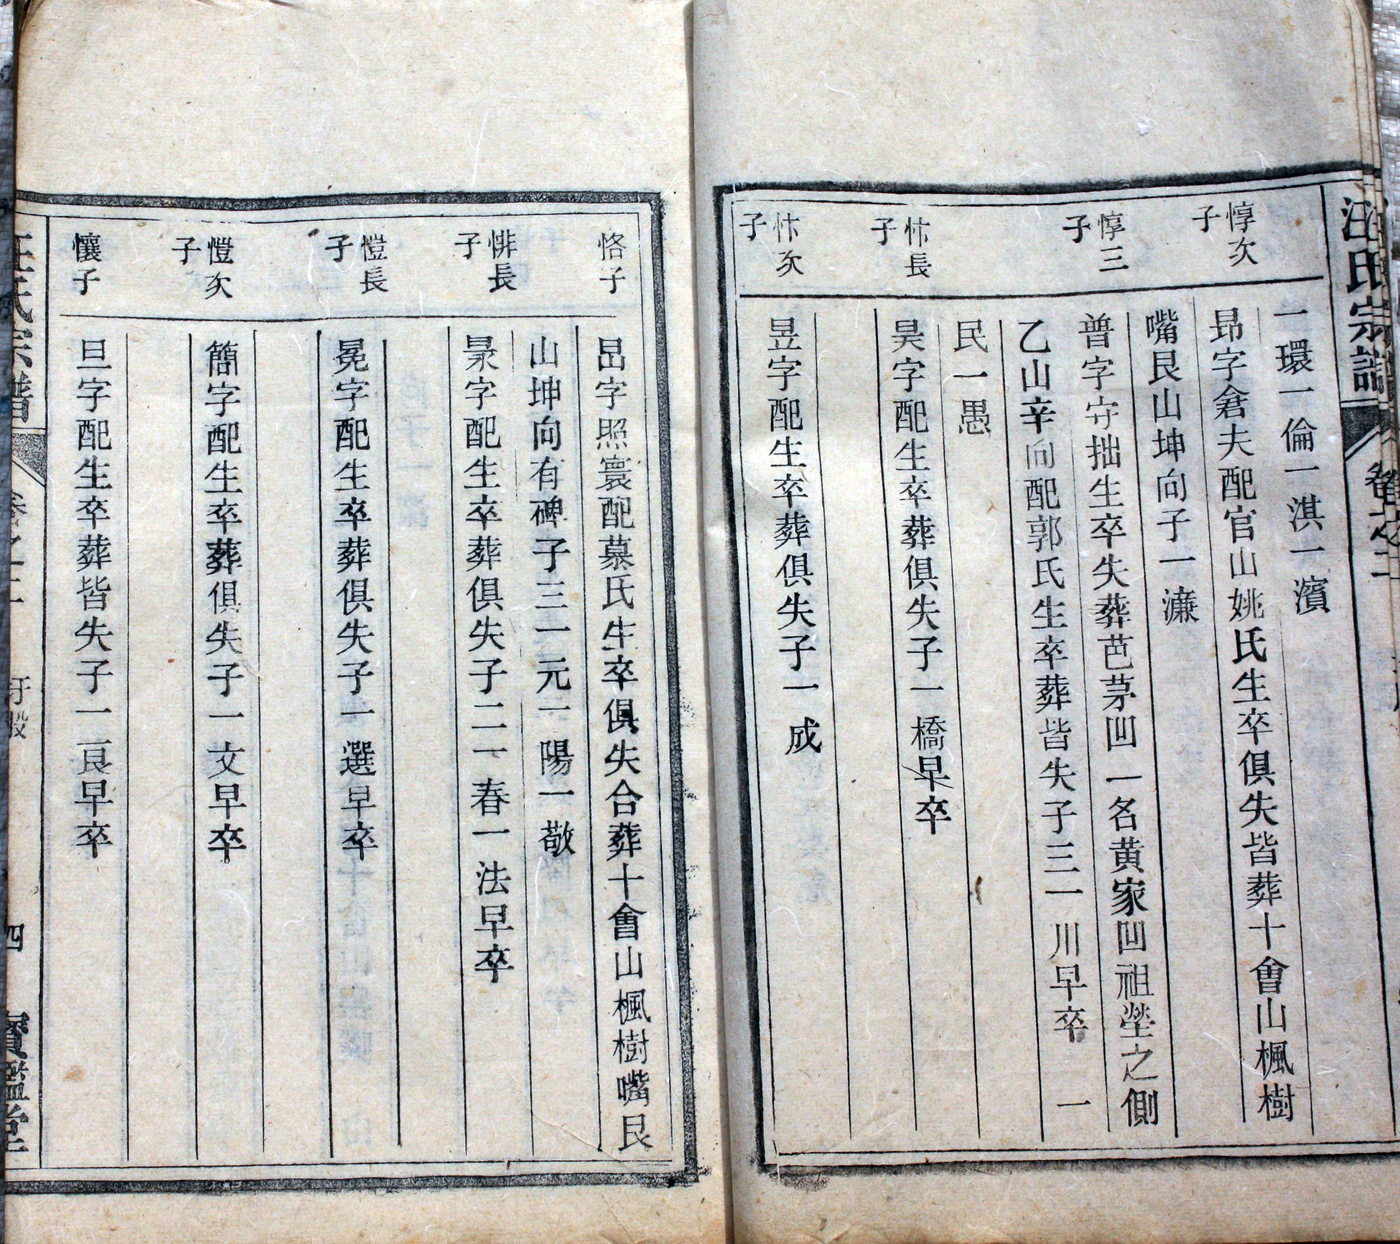 汪氏宗譜
卷之二
惇次子
一環一倫一淇一濱
昻字倉夫配官山姚氏生卒俱失皆葬十會山楓樹
嘴艮山坤向子一濂
惇三子
普字守拙生卒失葬芭茅凹一名黄家凹祖塋之側
乙山辛向配郭氏生卒葬皆失子三一川早卒一
民一愚
忭長子
昊字配生卒葬俱失子一橋早卒
忭次子
昱字配生卒葬俱失子一成
恪子
昌字照寰配慕氏生卒俱失合葬十會山楓樹嘴艮
山坤向有碑子三一元一陽一敬
悱長子
景字配生卒葬俱失子二一春一法早卒
愷長子
冕字配生卒葬俱失子一選早卒
愷次子
簡字配生卒葬俱失子一文早卒
懷子
旦字配生卒葬皆失子一良早卒
汪氏宗譜
卷之二
四
寶鑑堂